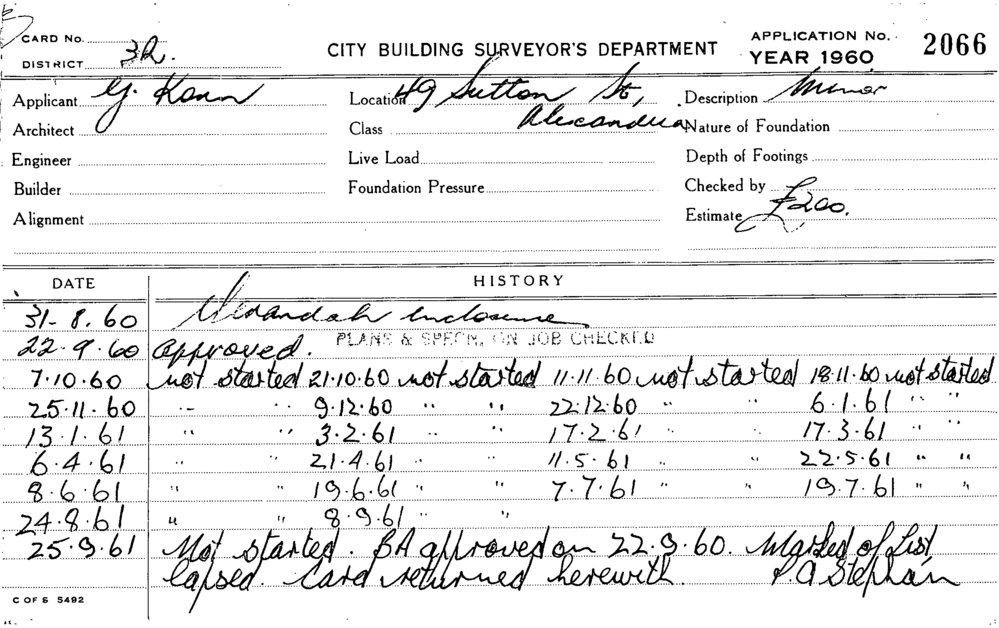 CARD No.
DISTRICT 3R.
CITY BUILDING SURVEYOR'S DEPARTMENT
APPLICATION No. 2066
YEAR 1960
Applicant G. Kann Location 49 Sutton St, Alexandria Description Minor
Architect Class Nature of Foundation
Engineer Live Load Depth of Footings
Builder Foundation Pressure Checked by
Alignment Estimate £200.
DATE HISTORY
31-8.60 Verandah enclosure
22.9.60 approved. PLANS & SPECN. ON JOB CHECKED
7.10.60 not started 21.10.60 not started 11.11.60 not started 18.11.60 not started
25.11.60 " " 9.12.60 " " 22.12.60 " " 6.1.61 " "
13.1.61 " " 3.2.61 " " 17.2.61 " " 17.3.61 " "
6.4.61 " " 21.4.61 " " 11.5.61 " " 22.5.61 " "
8.6.61 " " 19.6.61 " " 7.7.61 " " 19.7.61 " "
24.8.61 " " 8.9.61 " "
25.9.61 Not started. BA approved on 22.9.60. Marked of List
lapsed. Card returned herewith. P A Stephan
C OF S 5492